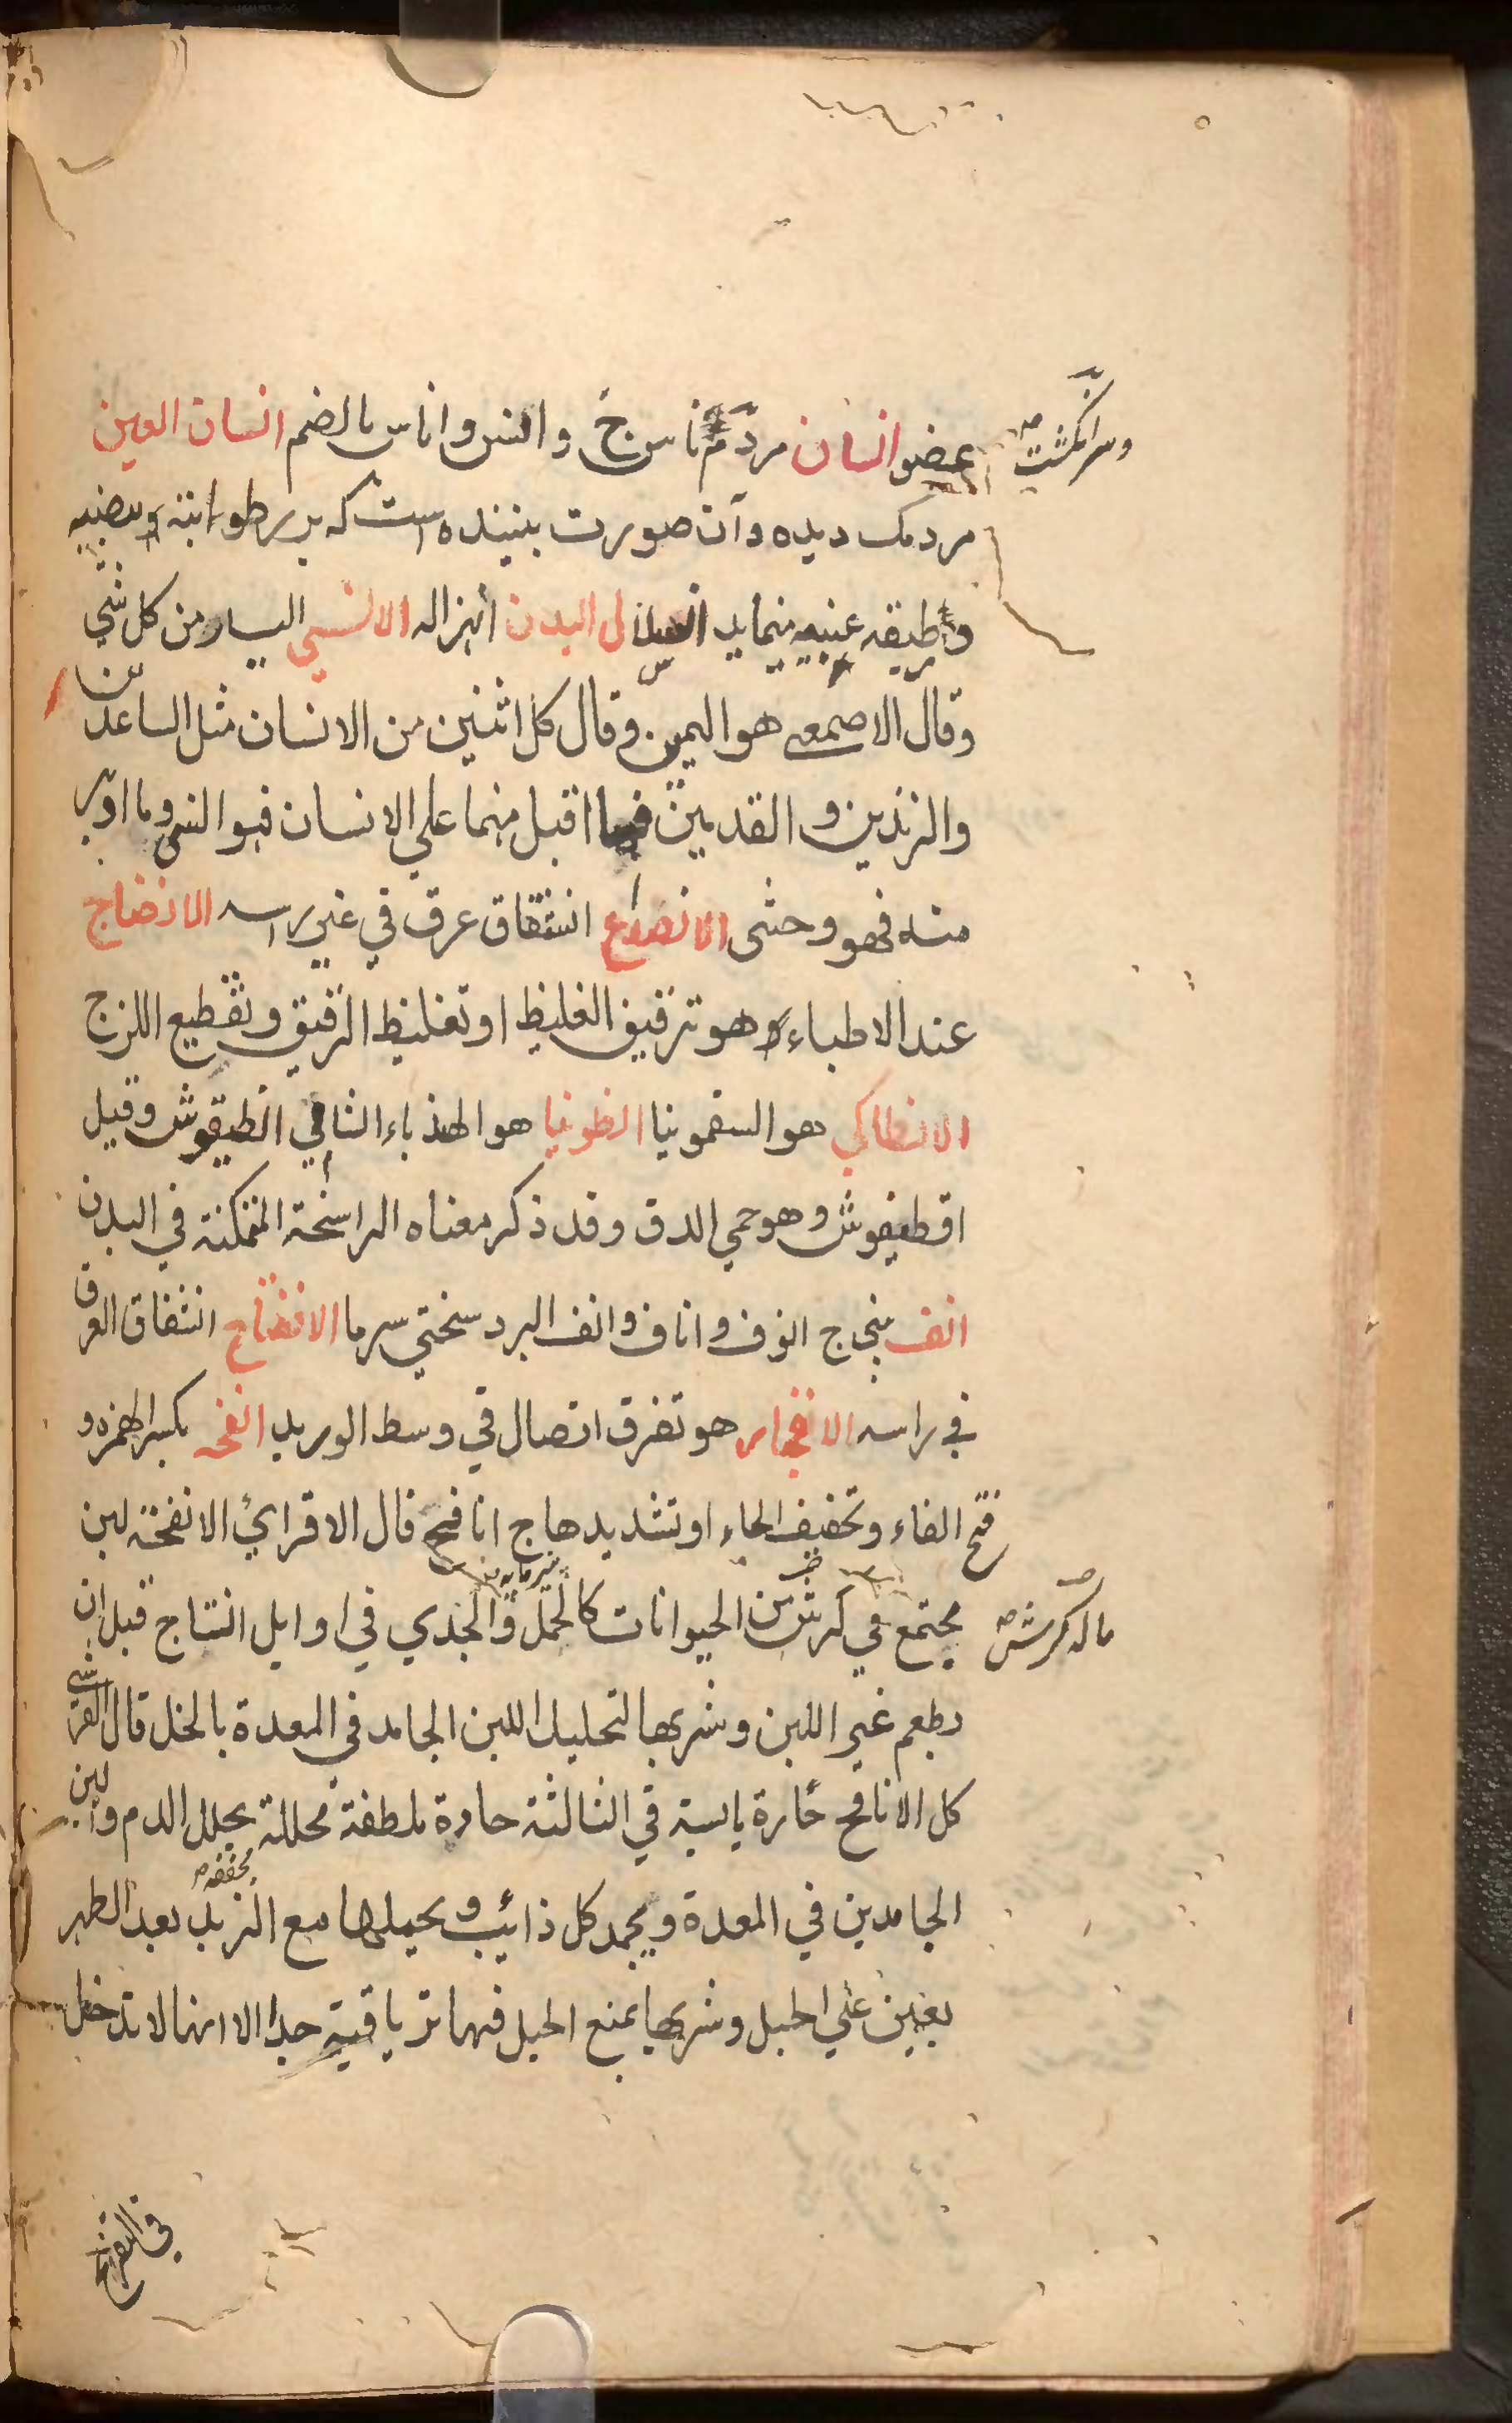 عضو انسان مردم ناس ج وانس واناس بالضم انسان العين
وسر انگشت
مردمک دیده وآن صورت بیننده است که بر رطوبته وبیضیه
وطبقه عنبیه مینماید البدن انهزاله الانسي اليسار من كل شي
وقال الاصمعي هو اليمين وقال كل اثنين من الانسان مثل الساعدين
والزندين والقدمين فما اقبل منهما علي الانسان فهو انسي وما ادبر
منه فهو وحشى الانصداع انشقاق عرق في غير راسه الانضاج
عند الاطباء هو ترقيق الغليظ او تغليظ الرقيق وتقطيع اللزج
الانطاكي هو السقمونيا انطونيا هو الهندباء الشامي انطيقوش وقيل
اقطيقوش وهو حمي الدق وقد ذكر معناه الراسخة المتمكنة في البدن
انف بيني ج انوف واناف وانف البرد سختي سرما الانفتاح انشقاق العرق
في راسه الانفجار هو تفرق اتصال في وسط الوريد انفحه بكسر الهمزه و
فتح الفاء وتخفيف الحاء او تشديدها ج انافح قال الاقرائي الانفحة لبن
يجتمع في كرش من الحيوانات كالحمل والجدي في اوايل النتاج قبل ان
ماله كرش
يطعم غير اللبن وشربها لتحليل اللبن الجامد في المعدة بالخل قال القرشي
كل الانافح حارة يابسة في الثالثة حادة ملطفة محللة يحلل الدم واللبن
الجامدين في المعدة ويجمد كل ذائب ويحملها مع الزبد بعد الطهر
مخففه
يعين علي الحبل وشربها يمنع الحبل فيها ترياقية جدا الا انها لا تدخل
في التفريح